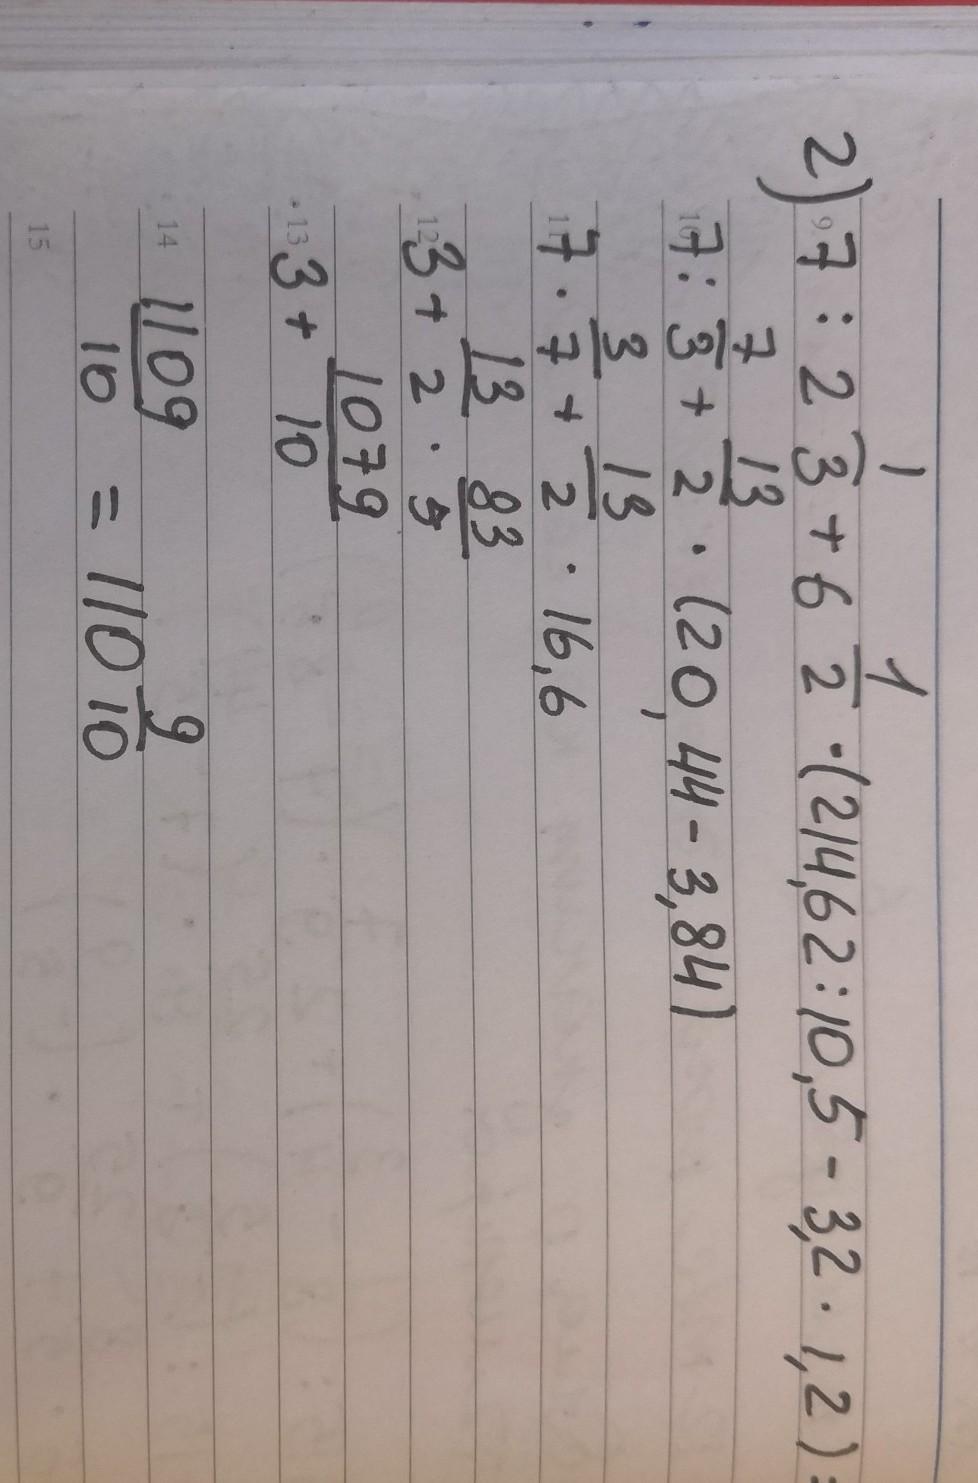 2) 7 : 2 1/3 + 6 1/2 · (214,62 : 10,5 - 3,2 · 1,2) =
7 : 7/3 + 13/2 · (20,44 - 3,84)
7 · 3/7 + 13/2 · 16,6
3 + 13/2 · 83/5
3 + 1079/10
1109/10 = 110 9/10
9
10
11
12
13
14
15